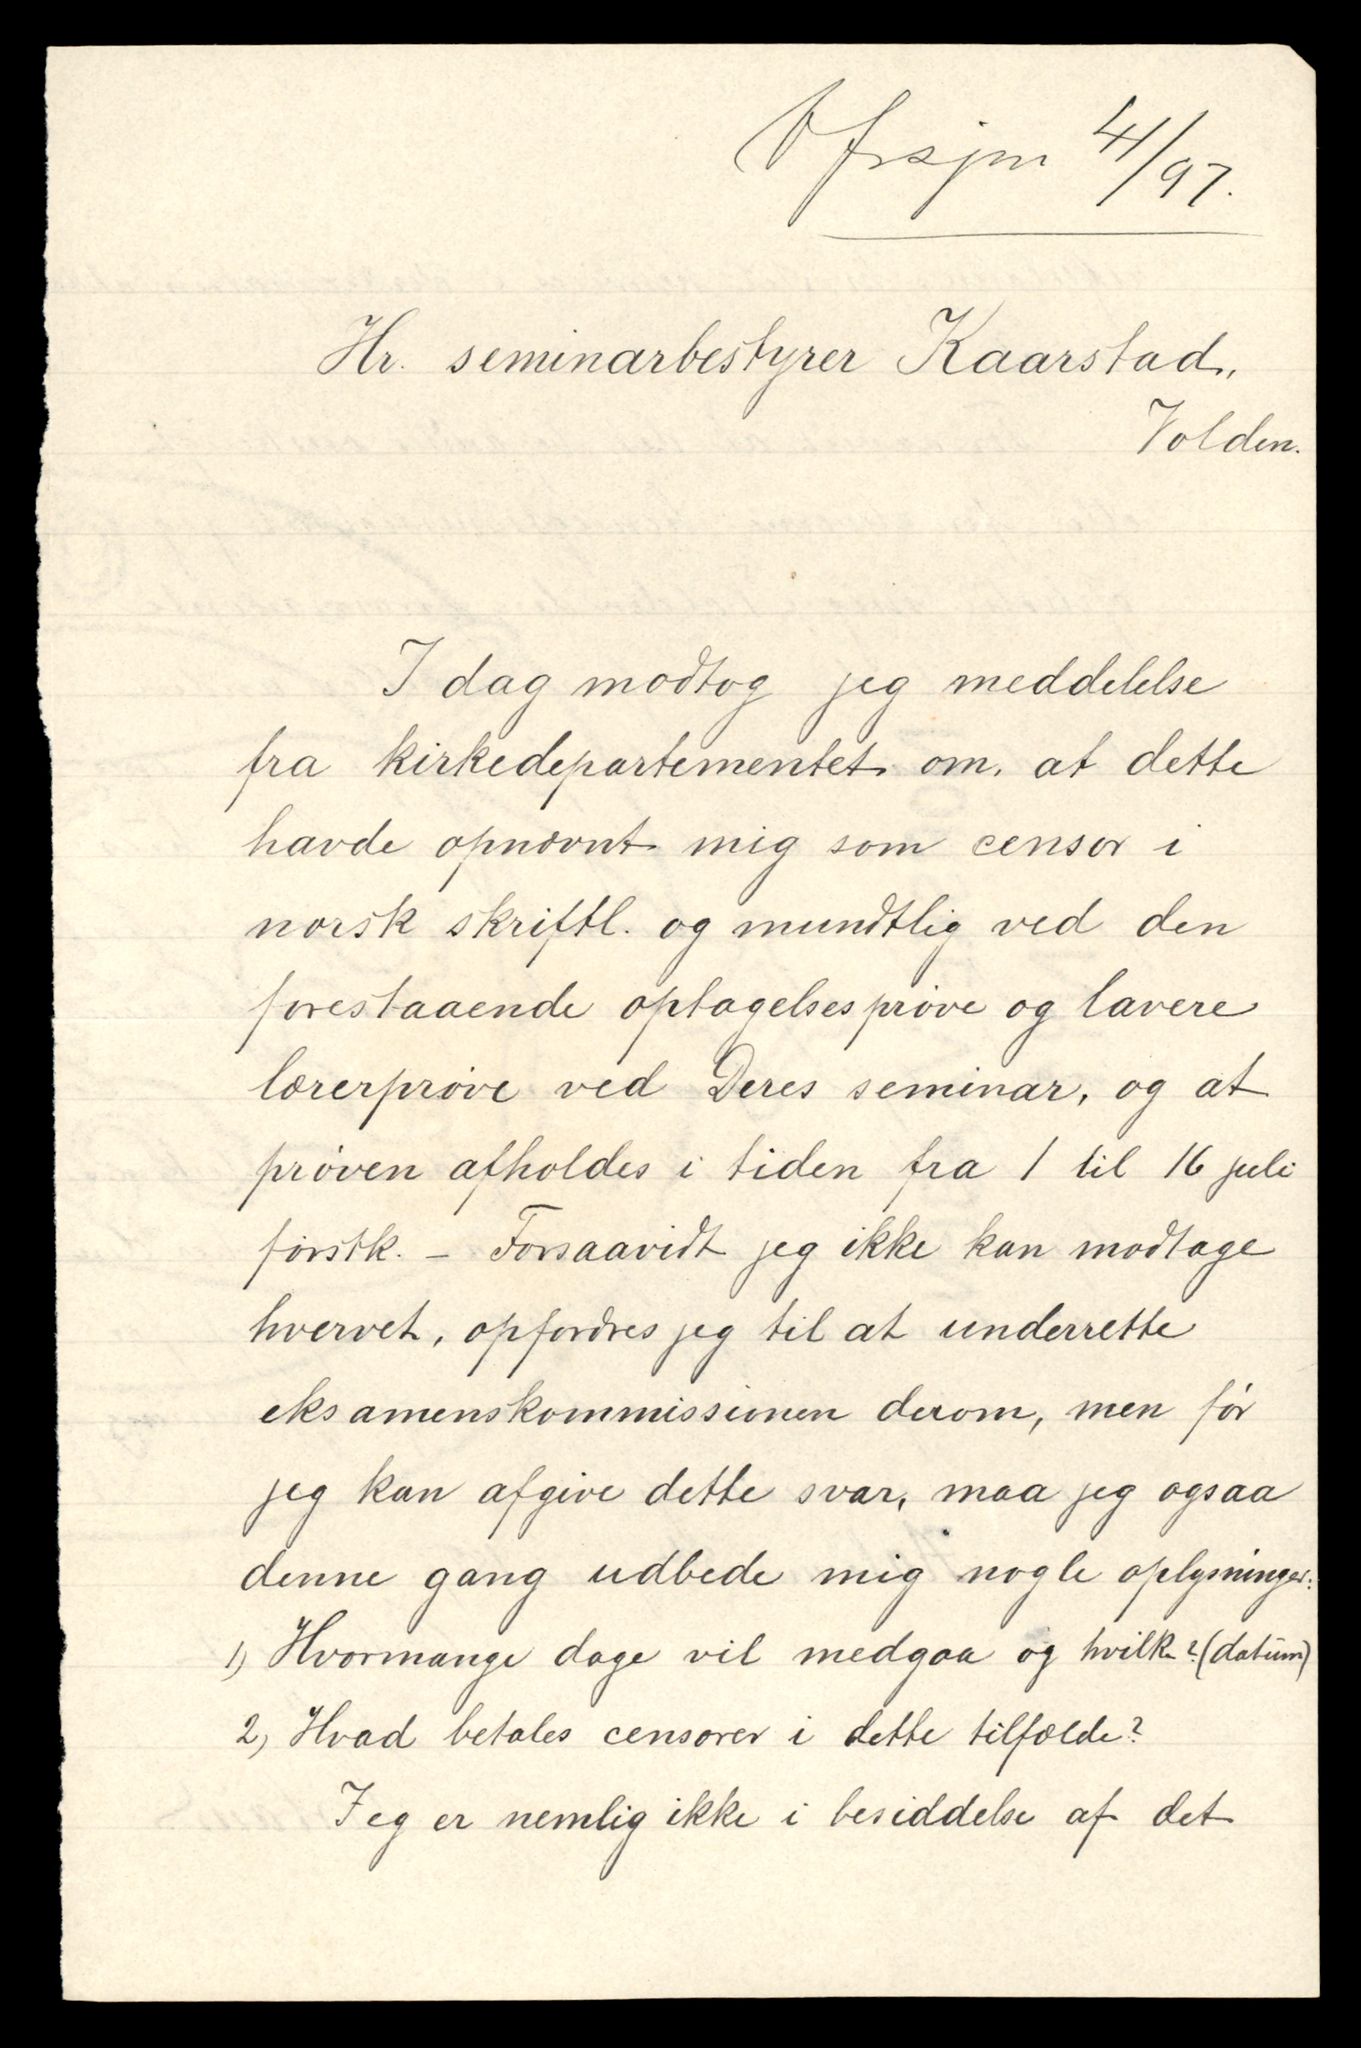 41/97.
Hr. seminarbestyrer Kaarstad,
Volden.
I dag modtog jeg meddelelse
fra kirkedepartementet om, at dette
havde opnævnt mig som censor i
norsk skriftl. og mundtlig ved den
forestaaende optagelsesprøve og lavere
lærerprøve ved Deres seminar, og at
prøven afholdes i tiden fra 1 til 16 juli
førstk. – Forsaavidt jeg ikke kan modtage
hvervet, opfordres jeg til at underrette
eksamenskommissionen derom, men før
jeg kan afgive dette svar, maa jeg ogsaa
denne gang udbede mig nogle oplysninger:
1) Hvormange dage vil medgaa og hvilke? (datum)
2) Hvad betales censorer i dette tilfælde?
Jeg er nemlig ikke i besiddelse af det